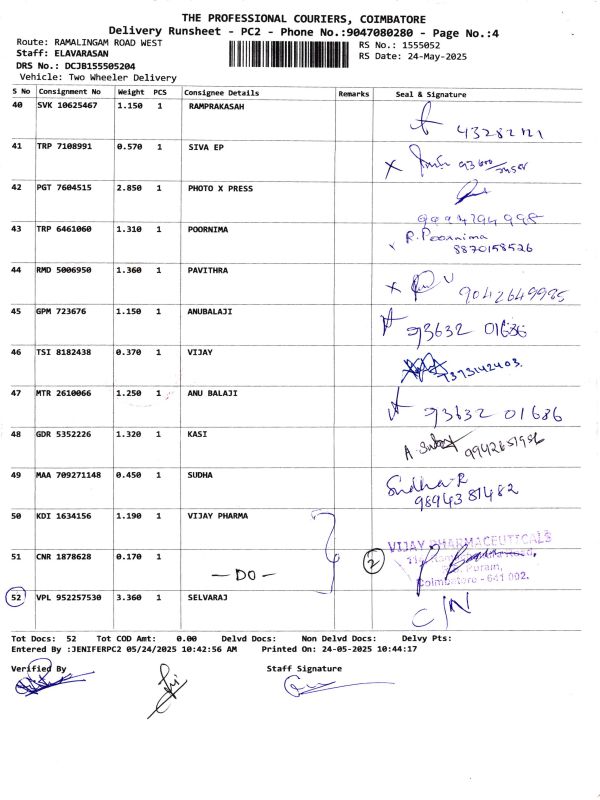 THE PROFESSIONAL COURIERS, COIMBATORE
Delivery Runsheet - PC2 - Phone No.:9047080280 - Page No.:4
Route: RAMALINGAM ROAD WEST
RS No.: 1555052
Staff: ELAVARASAN
RS Date: 24-May-2025
DRS No.: DCJB155505204
Vehicle: Two Wheeler Delivery
S No Consignment No Weight PCS Consignee Details Remarks Seal & Signature
40 SVK 10625467 1.150 1 RAMPRAKASAH
41 TRP 7108991 0.570 1 SIVA EP
42 PGT 7604515 2.850 1 PHOTO X PRESS
43 TRP 6461060 1.310 1 POORNIMA R. Poornima
8870158526
44 RMD 5006950 1.360 1 PAVITHRA
9042649985
45 GPM 723676 1.150 1 ANUBALAJI
93632 01686
46 TSI 8182438 0.370 1 VIJAY
7373142403.
47 MTR 2610066 1.250 1 ANU BALAJI
93632 01686
48 GDR 5352226 1.320 1 KASI
9942651986
49 MAA 709271148 0.450 1 SUDHA Sudha-R
9894381482
50 KDI 1634156 1.190 1 VIJAY PHARMA
VIJAY PHARMACEUTICALS
51 CNR 1878628 0.170 1 — DO — 2
Puram,
Coimbatore - 641 002.
52 VPL 952257530 3.360 1 SELVARAJ C/N
Tot Docs: 52 Tot COD Amt: 0.00 Delvd Docs: Non Delvd Docs: Delvy Pts:
Entered By :JENIFERPC2 05/24/2025 10:42:56 AM Printed On: 24-05-2025 10:44:17
Verified By Staff Signature